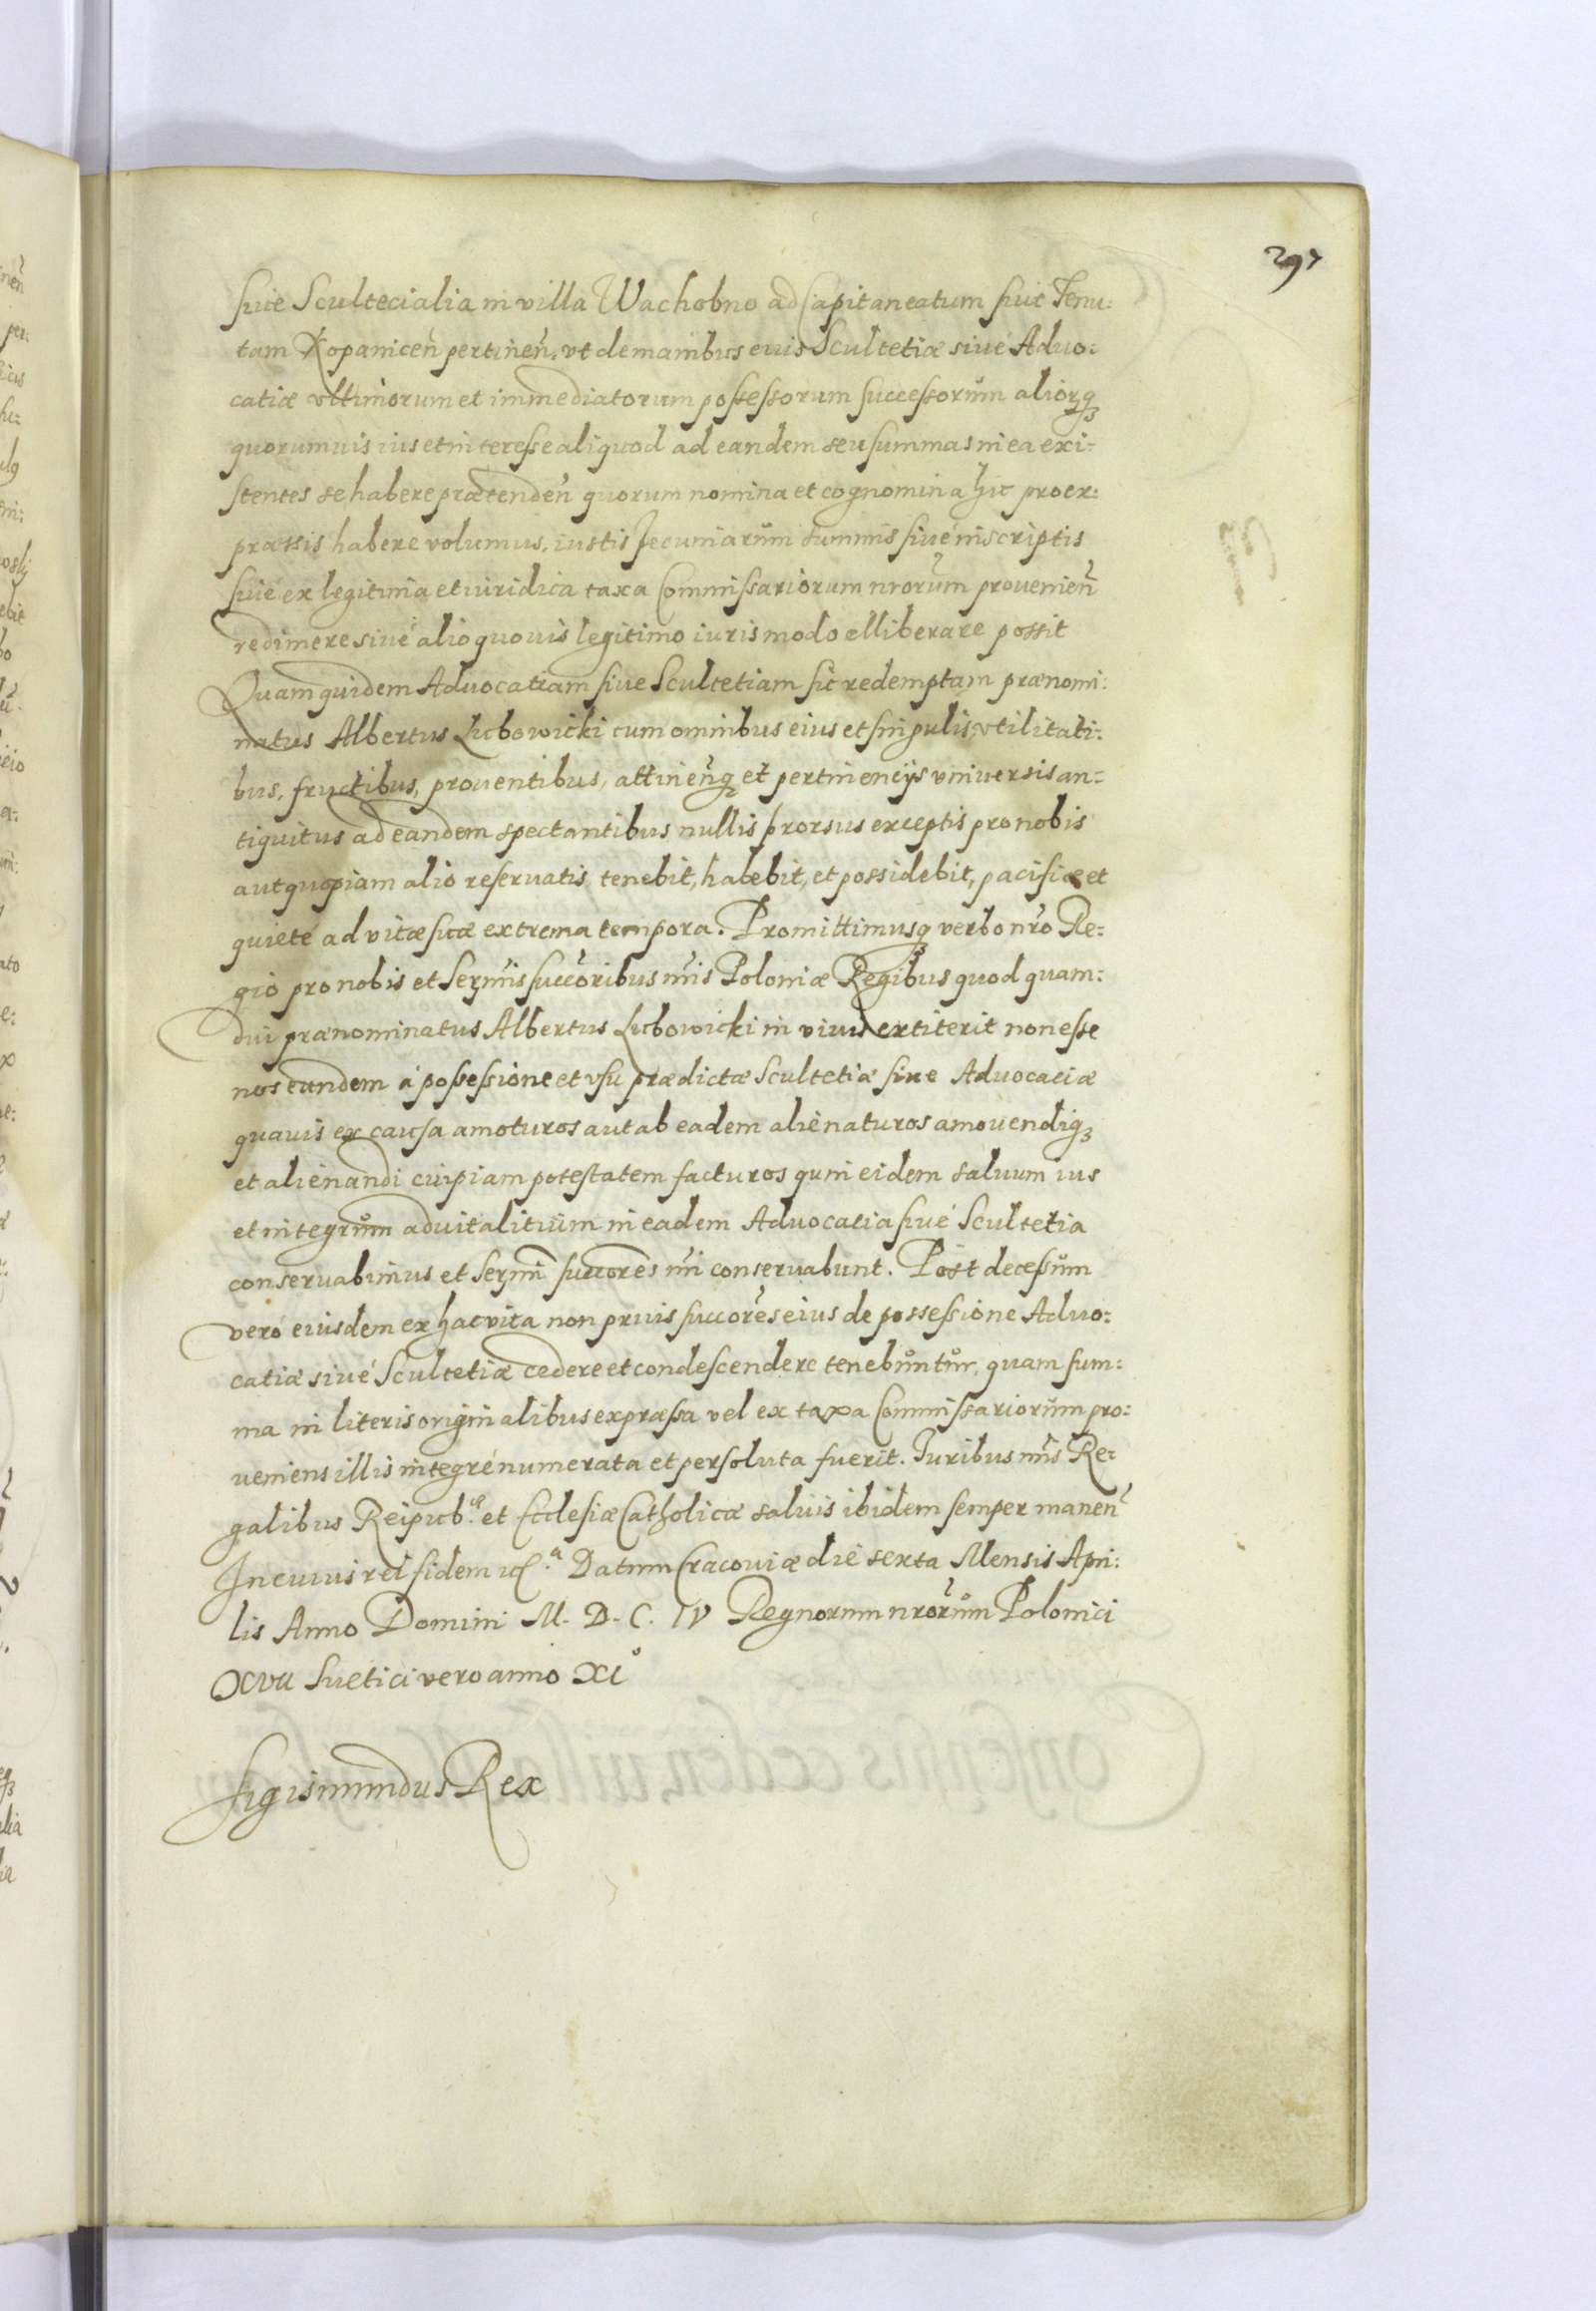 297
siue Scultecialia in villa Wachobno ad Capitaneatum siue Tenu:
tam Kopanicen̄ pertinen̄. vt de manibus euis Scultetiæ siué Aduo:
catiæ vltimorum et immediatorum possessorum successorum aliorq̨
quorumuis ius et interesse aliquod ad eandem seu summas in ea exi:
stentes se habere prætenden̄ quorum nomina et cognomina hic pro ex:
præssis habere volumus, iustis pecuniarum summis siué inscriptis
siué ex legitima et iuridica taxa Commissariorum nrorum prouenien̄
redimere siué alio quouis legitimo iuris modo elliberare possit
Quam quidem Aduocatiam siue Scultetiam sic redemptam prænomi:
natus Albertus Lubowicki cum omnibus eius et singulis vtilitati:
bus, fructibus, prouentibus, attinen̄q̨ et pertinencijs vniuersis an:
tiquitus ad eandem spectantibus nullis prorsus exceptis pro nobis
aut quopiam alio reseruatis, tenebit, habebit, et possidebit, pacificæ et
quieté ad vitæ suæ extrema tempora. Promittimusq̨ verbo nr̄o Re:
gio pro nobis et Serm̄is succōribus nr̄is Poloniæ Regibus quod quam:
diu prænominatus Albertus Lubowicki in viuis extiterit non esse
nos eundem á possessione et vsu prædictæ Scultetiæ siue Aduocaciæ
quauis ex causa amoturos aut ab eadem alienaturos amouendiq̨
et alienandi cuipiam potestatem facturos quin eidem saluum ius
et integrum aduitalitium in eadem Aduocatia siué Scultetia
conseruabimus et Serm̄i succōres nr̄i conseruabunt. Post decessum
veró eiusdem ex hac vita non prius succōres eius de possessione Aduo:
catiæ siué Scultetiæ cedere et condescendere tenebuntur, quam sum:
ma in literis originalibus expræssa vel ex taxa Commissariorum pro:
ueniens illis integré numerata et persoluta fuerit. Iuribus nr̄is Re:
galibus Reipub:cæ et Ecclesiæ Catholicæ saluis ibidem semper manen̄
In cuius rei fidem etc.a Datum Cracouiæ die sexta Mensis Apri:
lis Anno Domini M. D. C. IV Regnorum nrorum Polonici
XVII Suetici vero anno XIo
Sigismundus Rex